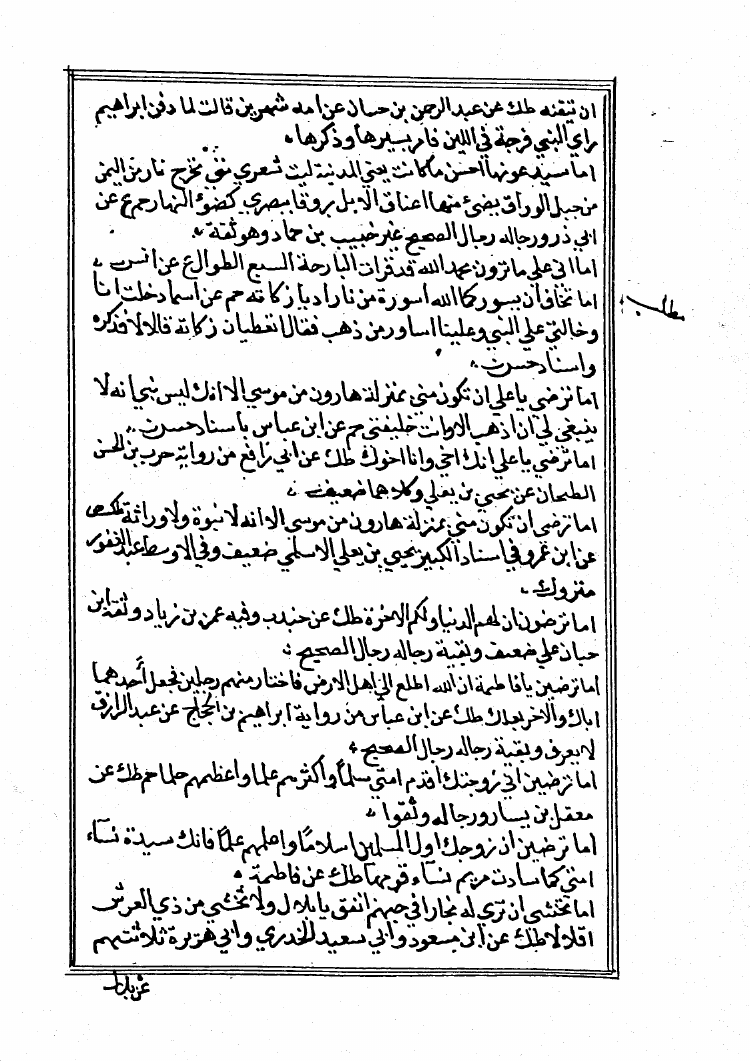 ان تتقنه طك عن عبد الرحمن بن حسان عن امه شيرين قالت لما دفن ابراهيم
راي النبي فرجة في اللبن فامر بسدها وذكرها
اما سيدعونها احسن ما كانت يعني المدينة ليت شعري متى تخرج نار من اليمن
من جبل الوراق يضئ منها اعناق الابل بروقا ببصري كضوء النهار حم ع عن
ابي ذر ورجاله رجال الصحيح غير حبيب بن حماد وهو ثقة
اما اني علي ما ترون بحمد الله قد قرات البارحة السبع الطوال ع عن انس
اما تخافان يسوركما الله اسورة من نار اديا زكاته حم عن اسما دخلت انا
وخالتي علي النبي وعلينا اساور من ذهب فقال اتعطيان زكاته قالا لا فذكره
واسناد حسن
مطلب
اما ترضي يا علي ان تكون مني بمنزلة هارون من موسي الا انك ليس بنبي انه لا
ينبغي لي ان اذهب الا وانت خليفتي حم عن ابن عباس باسناد حسن
اما ترضي يا علي انك اخي وانا اخوك طك عن ابي رافع من رواية حرب بن الحسن
الطحان عن يحيي بن يعلي وكلاهما ضعيف
اما ترضي ان تكون مني بمنزلة هارون من موسي الا انه لا نبوة ولا وراثة
عن ابن عمرو في اسناد الكبير يحيي بن يعلي الاسلمي ضعيف وفي الاوسط عبد الغفور
متروك
اما ترضون ان لهم الدنيا ولكم الاخرة طك عن جندب وفيه عمر بن زياد وثقه ابن
حبان علي ضعيف وبقية رجاله رجال الصحيح
اما ترضين يا فاطمة ان الله اطلع الي اهل الارض فاختار منهم رجلين فجعل أحدهما
اباك والاخر بعلك طك عن ابن عباس من رواية ابراهيم بن الحجاج عن عبد الرازق
لا يعرف وبقية رجاله رجال الصحيح
اما ترضين اني زوجتك اقدم امتي سلما واكثرهم علما واعظمهم حلما حم طك عن
معقل بن يسار ورجاله وثقوا
اما ترضين ان زوجك اول المسلمين اسلاما واعلمهم علما فانك سيدة نسآء
امتي كما سادت مريم نسآء قومها طك عن فاطمة
اما تخشي ان تري له بخارا في جهنم انفق يا بلال ولا تخشي من ذي العرش
اقلالا طك عن ابن مسعود وابي سعيد الخدري وابي هريرة ثلاثتهم
عن بلال